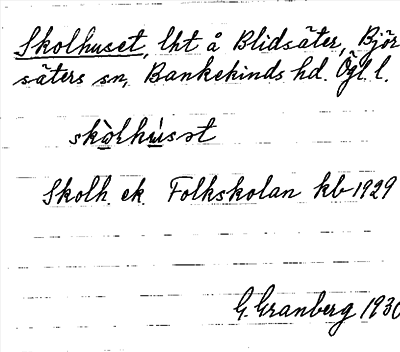 Skolhuset, lht å Blidsäter, Björ
säters sn, Bankekinds hd. Ögl. l.
skòlhùsət
Skolh. ek. Folkskolan kb 1929
G. Granberg 1930